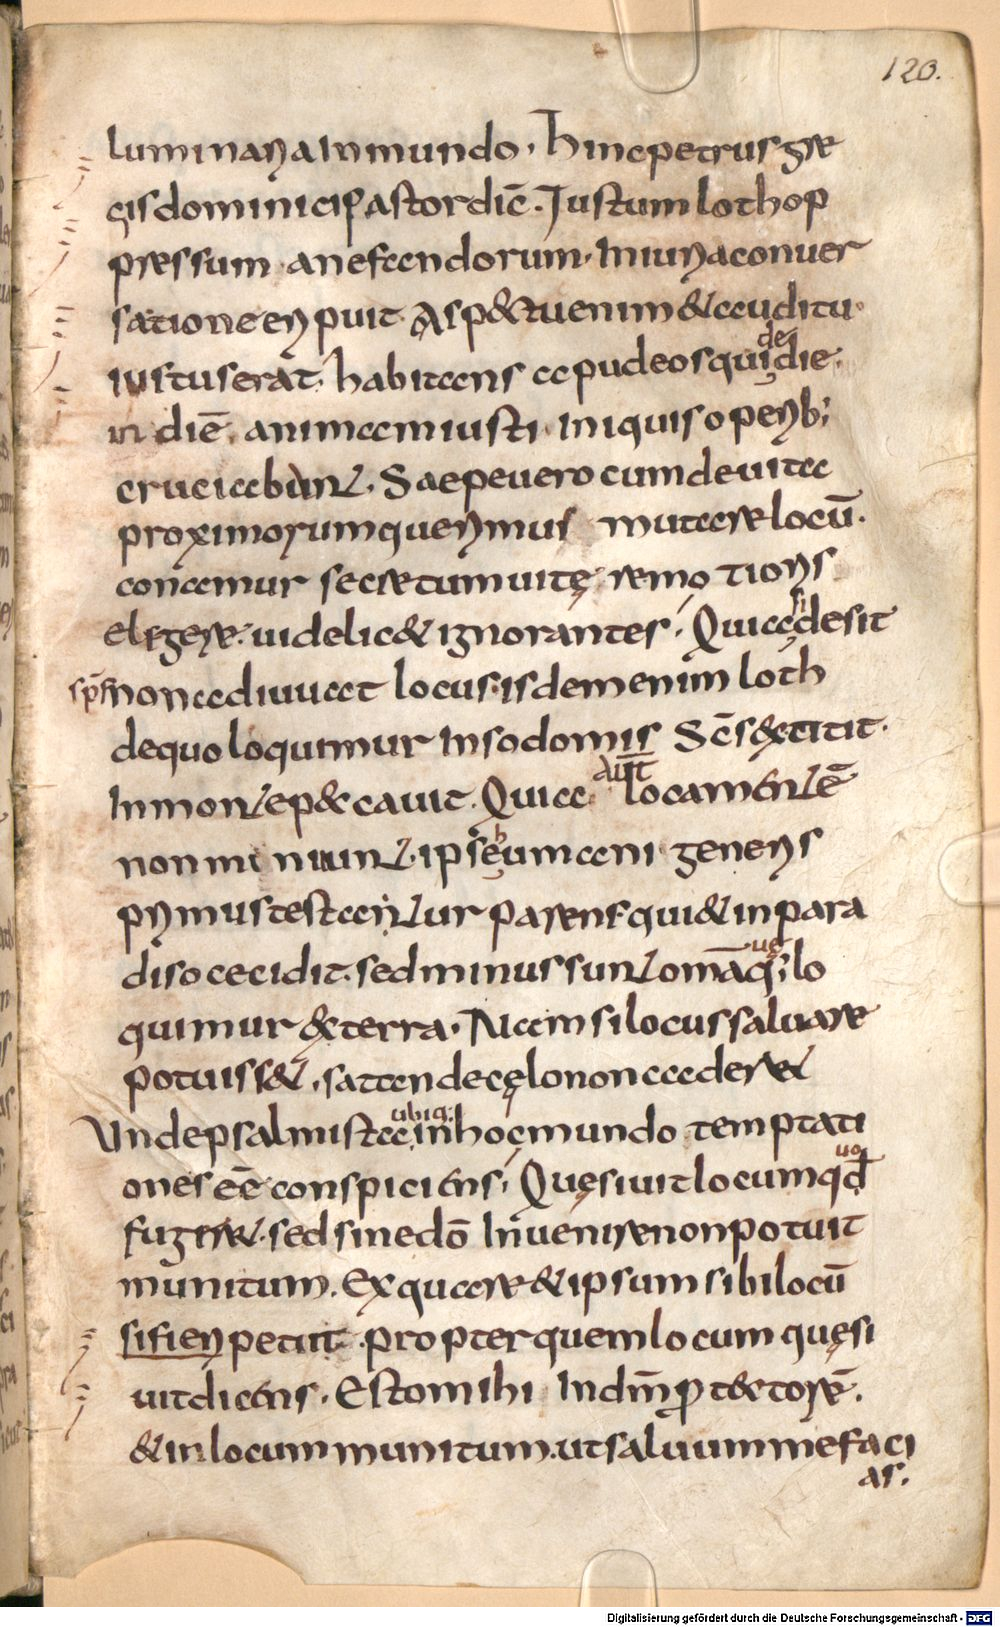 120.
luminaria in mundo. hinc petrus gre
gis dominici pastor diē. Justum loth op
pressum a nefandorum. Iniuria conuer
satione eripuit. Aspectu enim & auditu
iustus erat. habitans apud eos qui de die
in diē. animam iusti iniquis operib;
cruciabant. Saepe uero cum de uita
proximorum querimus mutare locū.
conamur secretum uitę remotioris
elegere. uidelic& ignorantes. Quia si desit
sp̄s non adiuuat locus. isdem enim loth
de quo loquimur In sodomis Sc̄s extitit.
In monte peccauit. Quia aut̄ loca mentē
non muniunt. ipse humani generis
primus testantur parens qui & in para
diso cecidit. sed minus sunt om̄a quę lo
quimur ex terra. Nam si locus saluare
potuiss&. satan de cęlo non caderet
Unde psalmista ubiq; in hoc mundo temptati
ones eē conspiciens. Quęsiuit locum quo
fugeret. sed sine dō Inuenire non potuit
munitum. Ex qua re & ipsum sibi locū
si fieri petiit propter quem locum quęsi
uit dicens. Esto mihi In dm̄ protectorē.
& in locum munitum. ut saluum me faci
as.
Digitalisierung gefördert durch die Deutsche Forschungsgemeinschaft - DFG